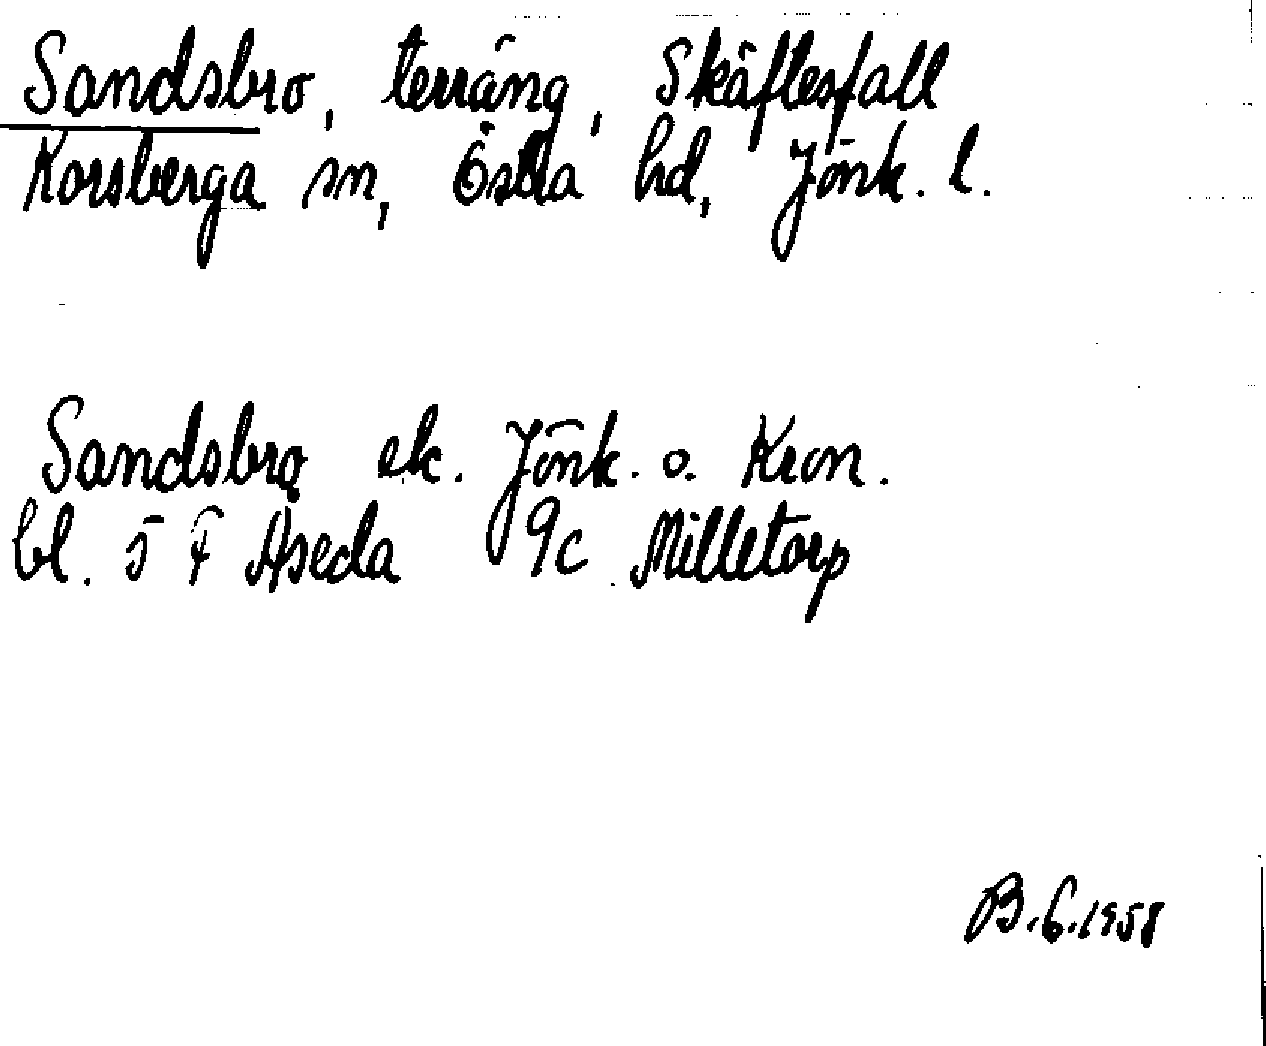 Sandsbro, terräng, Skäftesfall
Korsberga sn, Östra hd, Jönk. l.
Sandsbro ek. Jönk. o. Kron.
bl. 5 F Åseda 9c Milletorp
B.G.1958